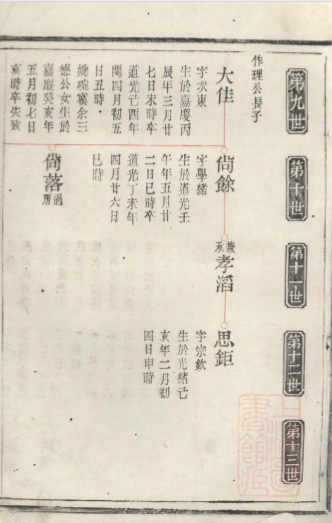 第九世
第十世
第十一世
第十二世
第十三世
作理公長子
大佳
字次東
生於嘉慶丙
辰年三月廿
七日未時卒
道光己酉年
閏四月初五
日丑時
余三
德公女生於
嘉慶癸亥年
五月初七日
亥時卒失攷
尙餘
字學緒
生於道光壬
午年五月廿
二日巳時卒
道光丁未年
四月廿六日
巳時
尙落
孝滔
思鉅
字宗欽
生於光緒己
亥年二月初
四日申時